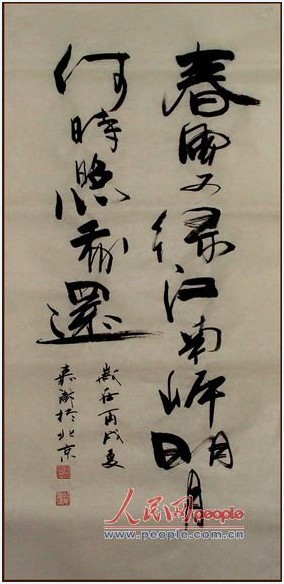 春風又緑江南岸明月
何時照我還
歲在丙戌夏
於北京
人民网
people
www.people.com.cn